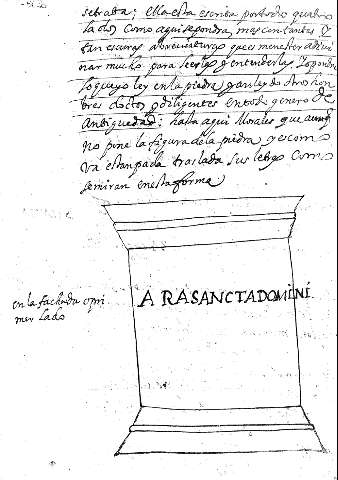 se trata; Ella esta escrita por todo quatro
lados como aqui se pondra, mas con tantas y
tan escuras abreviaturas que es menester adivi
nar mucho para leerlas y entenderlas. Yo pondre
lo que yo ley en la piedra, y an leydo otros hom
bres doctos, y diligentes en todo genero de
antiguedad: hasta aqui Morales que aunq
no pine la figura de la piedra y es com
va estanpada traslada sus letras com
se miran en esta forma
en la fachada o pri
mer lado
A RASANCTADOMINI